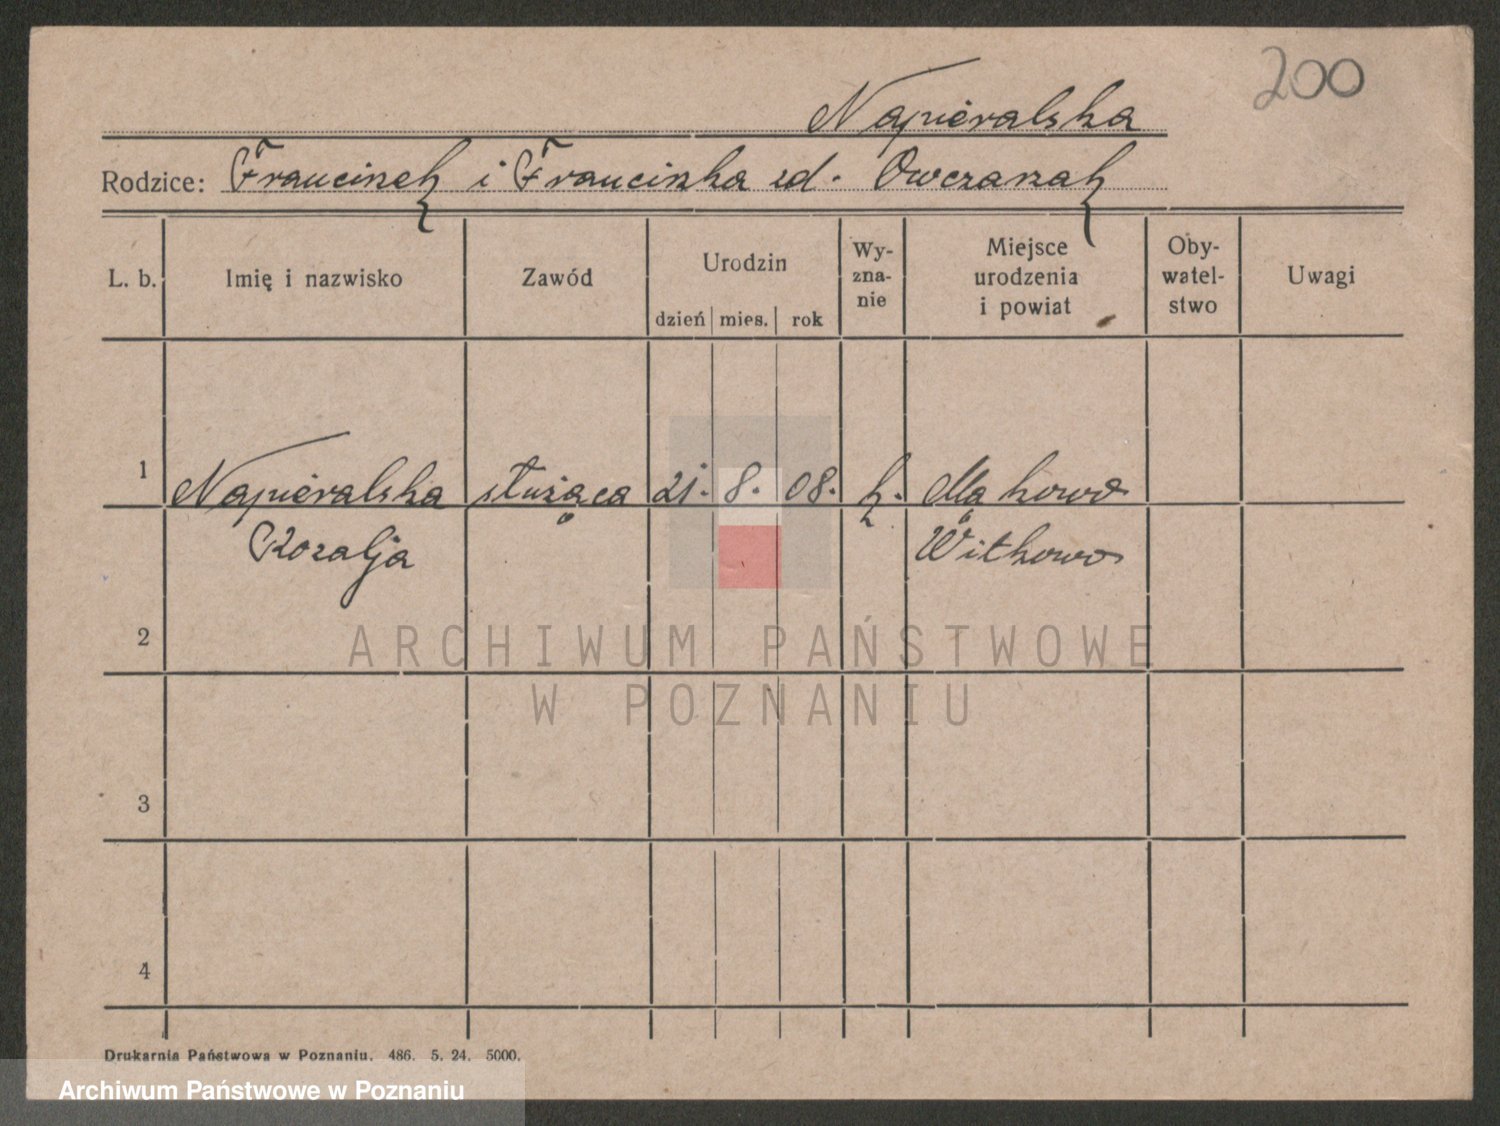 200
Napieralska
Rodzice: Franciszek i Franciszka zd. Owczarzak
L. b. Imię i nazwisko Zawód Urodzin dzień mies. rok Wy-zna-nie Miejsce urodzenia i powiat Oby-watel-stwo Uwagi
1 Napieralska służąca 21. 8. 08. k. Małachowo
Rozalja Witkowo
2
3
4
ARCHIWUM PAŃSTWOWE
W POZNANIU
Drukarnia Państwowa w Poznaniu. 486. 5. 24. 5000.
Archiwum Państwowe w Poznaniu